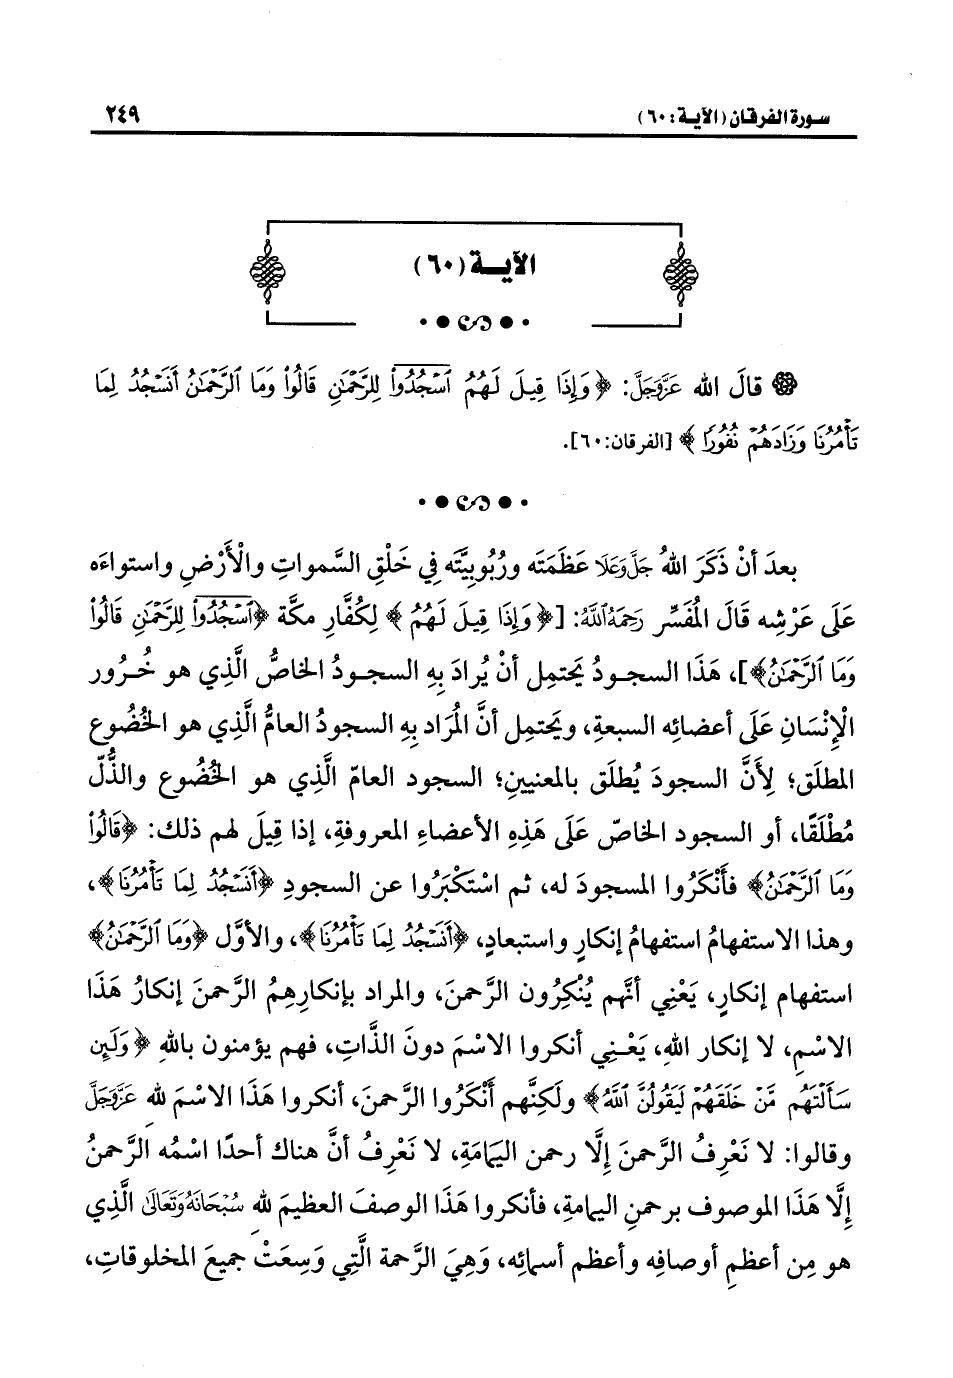 سورة الفرقان (الآية: ٦٠)
٢٤٩
الآية (٦٠)
قالَ الله عَزَّوَجَلَّ: ﴿وَإِذَا قِيلَ لَهُمُ ٱسْجُدُوا۟ لِلرَّحْمَٰنِ قَالُوا۟ وَمَا ٱلرَّحْمَٰنُ أَنَسْجُدُ لِمَا
تَأْمُرُنَا وَزَادَهُمْ نُفُورًا﴾ [الفرقان: ٦٠].
بعدَ أنْ ذَكَرَ اللهُ جَلَّ وَعَلَا عَظَمَتَه ورُبُوبِيَّتَه فِي خَلْقِ السَّمواتِ والْأَرْضِ واستواءَه
عَلَى عَرْشِه قَالَ المُفَسِّر رَحِمَهُ اللَّهُ: [﴿وَإِذَا قِيلَ لَهُمُ﴾ لِكُفَّارِ مكَّة ﴿ٱسْجُدُوا۟ لِلرَّحْمَٰنِ قَالُوا۟
وَمَا ٱلرَّحْمَٰنُ﴾]، هَذَا السجودُ يَحتمِل أنْ يُرادَ بِهِ السجودُ الخاصُّ الَّذِي هو خُرور
الْإِنْسَانِ عَلَى أعضائه السبعة، ويَحتمِل أنَّ المُرَاد بِهِ السجودُ العامُّ الَّذِي هو الخُضُوع
المطلَق؛ لِأَنَّ السجودَ يُطلَق بالمعنيينِ؛ السجود العامّ الَّذِي هو الخُضُوع والذُّلّ
مُطْلَقًا، أو السجود الخاصّ عَلَى هَذِهِ الأعضاءِ المعروفةِ، إذا قِيلَ لهم ذلك: ﴿قَالُوا۟
وَمَا ٱلرَّحْمَٰنُ﴾ فأَنْكَرُوا المسجودَ له، ثم اسْتَكْبَرُوا عن السجودِ ﴿أَنَسْجُدُ لِمَا تَأْمُرُنَا﴾،
وهذا الاستفهامُ استفهامُ إنكارٍ واستبعادٍ، ﴿أَنَسْجُدُ لِمَا تَأْمُرُنَا﴾، والأوَّل ﴿وَمَا ٱلرَّحْمَٰنُ﴾
استفهام إنكارٍ، يَعْنِي أنَّهم يُنْكِرُون الرَّحمنَ، والمراد بإنكارِهِمُ الرَّحمنَ إنكارُ هَذَا
الاسْمِ، لا إنكار اللهِ، يَعْنِي أنكروا الاسْمَ دونَ الذَّاتِ، فهم يؤمنون باللهِ ﴿وَلَئِن
سَأَلْتَهُم مَّنْ خَلَقَهُمْ لَيَقُولُنَّ ٱللَّهُ﴾ ولَكِنَّهم أَنْكَرُوا الرَّحمنَ، أنكروا هَذَا الاسْمَ للهِ عَزَّوَجَلَّ
وقالوا: لا نَعْرِفُ الرَّحمنَ إلَّا رحمن اليَمامَةِ، لا نَعْرِفُ أنَّ هناك أحدًا اسْمُه الرَّحمنُ
إلَّا هَذَا الموصوف برحمنِ اليمامةِ، فأنكروا هَذَا الوصفَ العظيمَ للهِ سُبْحَانَهُ وَتَعَالَى الَّذِي
هو مِن أعظمِ أوصافِه وأعظم أسمائِه، وَهِيَ الرَّحمة الَّتِي وَسِعَتْ جميعَ المخلوقاتِ،